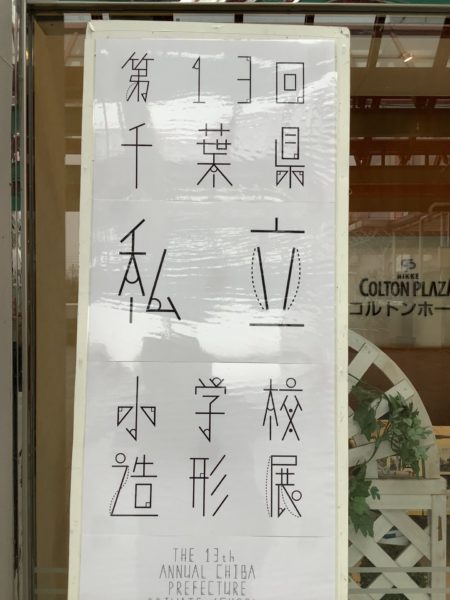 第13回
千葉県
私立
小学校
造形展
THE 13th
ANNUAL CHIBA
PREFECTURE
NIKKE
COLTON PLAZA
コルトンホー